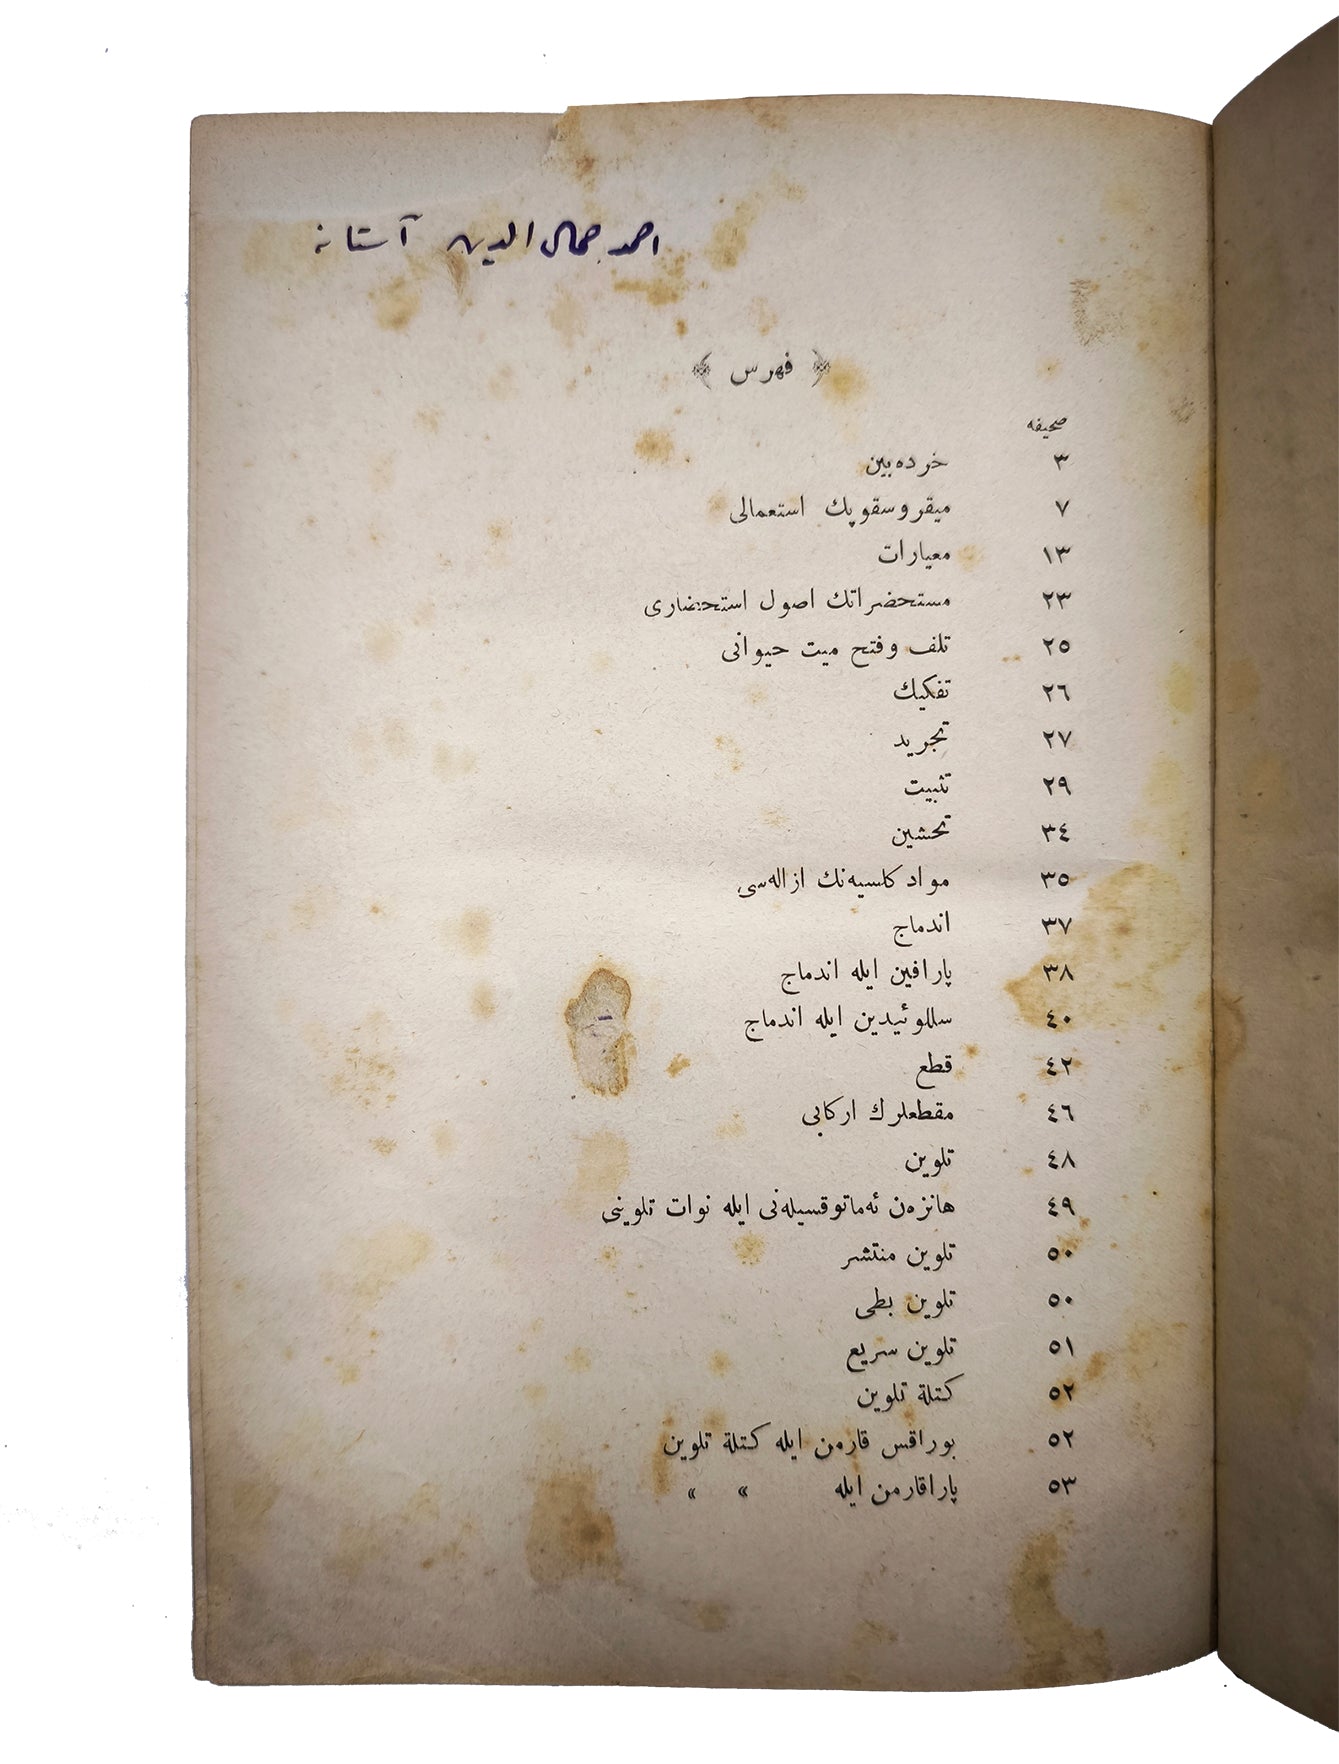 احمد جمال الدين آستانه
﴿ فهرس ﴾
صحيفه
٣ خرده‌بين
٧ ميقروسقوپك استعمالى
١٣ معيارات
٢٣ مستحضراتك اصول استحضارى
٢٥ تلف وفتح ميت حيوانى
٢٦ تفكيك
٢٧ تجريد
٢٩ تثبيت
٣٤ تخشين
٣٥ مواد كلسيه‌نك ازاله‌سى
٣٧ اندماج
٣٨ پارافين ايله اندماج
٤٠ سللوئيدين ايله اندماج
٤٢ قطع
٤٦ مقطعلرك اركابى
٤٨ تلوين
٤٩ هانزه‌ن ئه‌ماتوقسيله‌نى ايله نوات تلوينى
٥٠ تلوين منتشر
٥٠ تلوين بطى
٥١ تلوين سريع
٥٢ كتلة تلوين
٥٢ بوراقس قارمن ايله كتلة تلوين
٥٣ پاراقارمن ايله » »